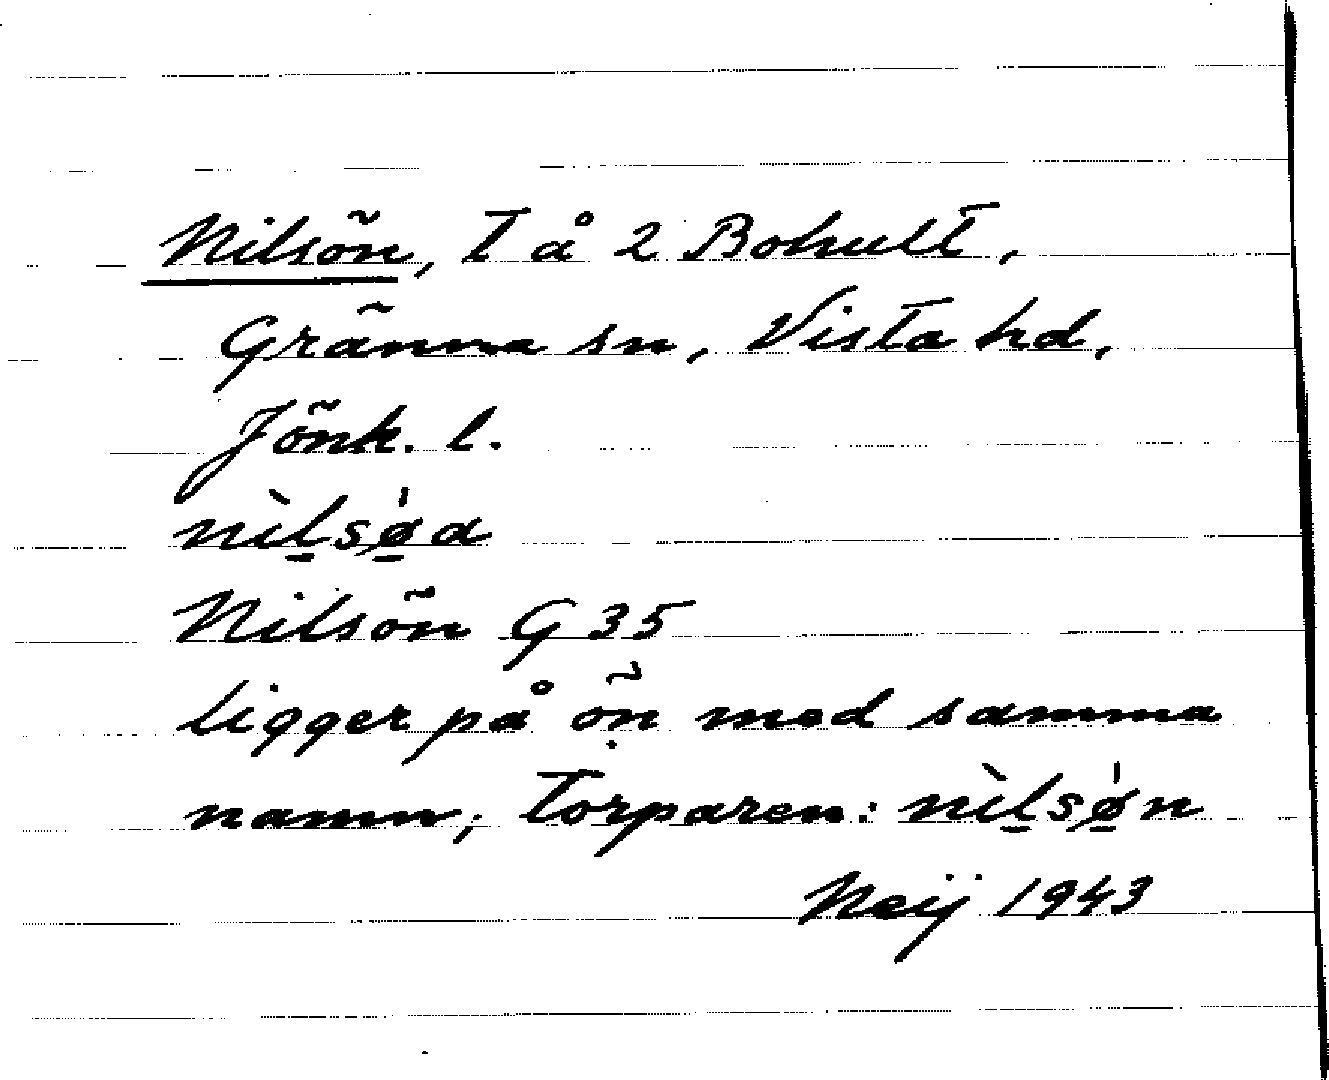 Nilsön, t å 2 Bohult,
Gränna sn, Vista hd,
Jönk. l.
nìl̠sø̠̍a
Nilsön G 35
ligger på ön med samma
namn; torparen: nìl̠sø̠̍n
Neij 1943